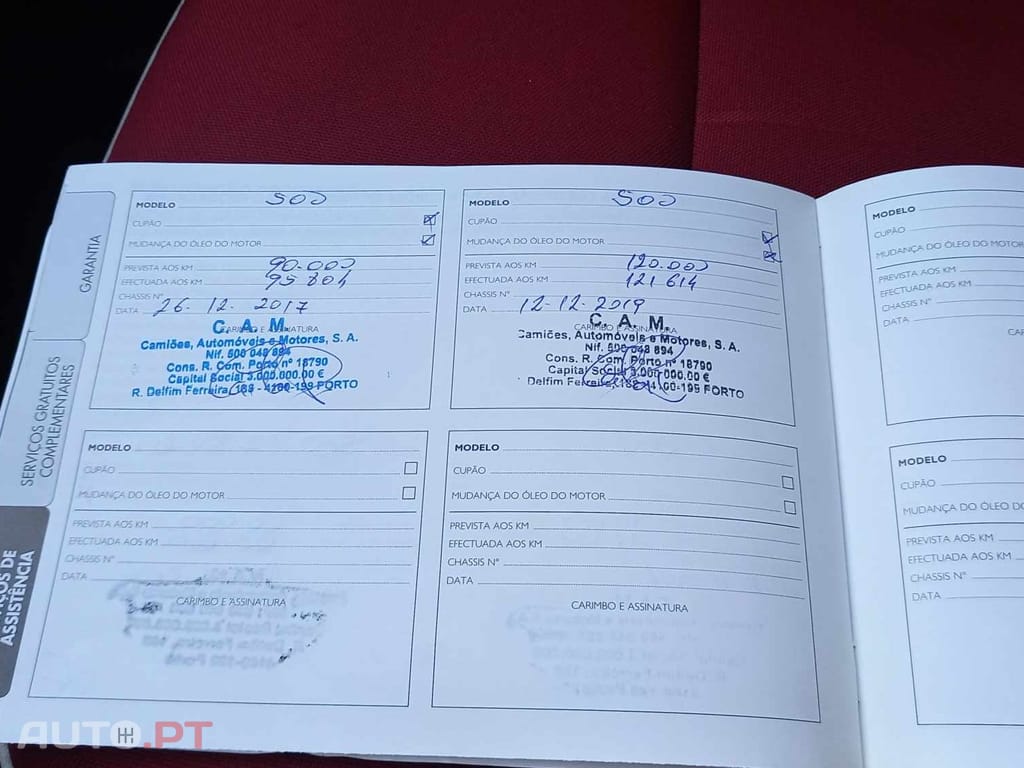 GARANTIA
SERVIÇOS GRATUITOS
COMPLEMENTARES
ASSISTÊNCIA
MODELO 500
CUPÃO
MUDANÇA DO ÓLEO DO MOTOR
PREVISTA AOS KM 90.000
EFECTUADA AOS KM 95804
CHASSIS Nº
DATA 26. 12. 2017
CARIMBO E ASSINATURA
C. A. M.
Camiões, Automóveis e Motores, S. A.
Nif. 500 048 894
Cons. R. Com. Porto nº 18790
Capital Social 3.000.000.00 €
R. Delfim Ferreira, 189 - 4100-199 PORTO
MODELO 500
CUPÃO
MUDANÇA DO ÓLEO DO MOTOR
PREVISTA AOS KM 120.000
EFECTUADA AOS KM 121614
CHASSIS Nº
DATA 12-12-2019
CARIMBO E ASSINATURA
C. A. M.
Camiões, Automóveis e Motores, S. A.
Nif. 500 048 894
Cons. R. Com. Porto nº 18790
Capital Social 3.000.000.00 €
Delfim Ferreira, 4100-199 PORTO
MODELO
CUPÃO
MUDANÇA DO ÓLEO DO MOTOR
PREVISTA AOS KM
EFECTUADA AOS KM
CHASSIS Nº
DATA
MODELO
CUPÃO
MUDANÇA DO ÓLEO DO MOTOR
PREVISTA AOS KM
EFECTUADA AOS KM
CHASSIS Nº
DATA
CARIMBO E ASSINATURA
MODELO
CUPÃO
MUDANÇA DO ÓLEO DO MOTOR
PREVISTA AOS KM
EFECTUADA AOS KM
CHASSIS Nº
DATA
CARIMBO E ASSINATURA
MODELO
CUPÃO
MUDANÇA DO ÓLEO
PREVISTA AOS KM
EFECTUADA AOS KM
CHASSIS Nº
DATA
AUTO.PT